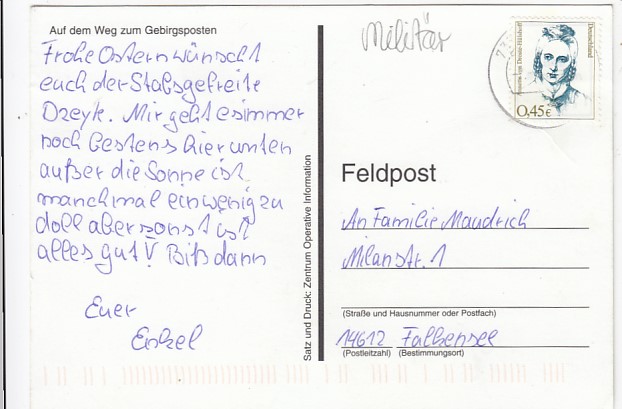 Auf dem Weg zum Gebirgsposten
Militär
Frohe Ostern wünscht
euch der Stabsgefreite
Dzeyk. Mir geht es immer
noch bestens hier unten
außer die Sonne ist
manchmal ein wenig zu
doll aber sonst ist
alles gut! Bis dann
Euer
Enkel
Satz und Druck: Zentrum Operative Information
Deutschland
Annette von Droste-Hülshoff
0,45€
Feldpost
An Familie Maudrich
Milanstr. 1
(Straße und Hausnummer oder Postfach)
14612 Falkensee
(Postleitzahl) (Bestimmungsort)